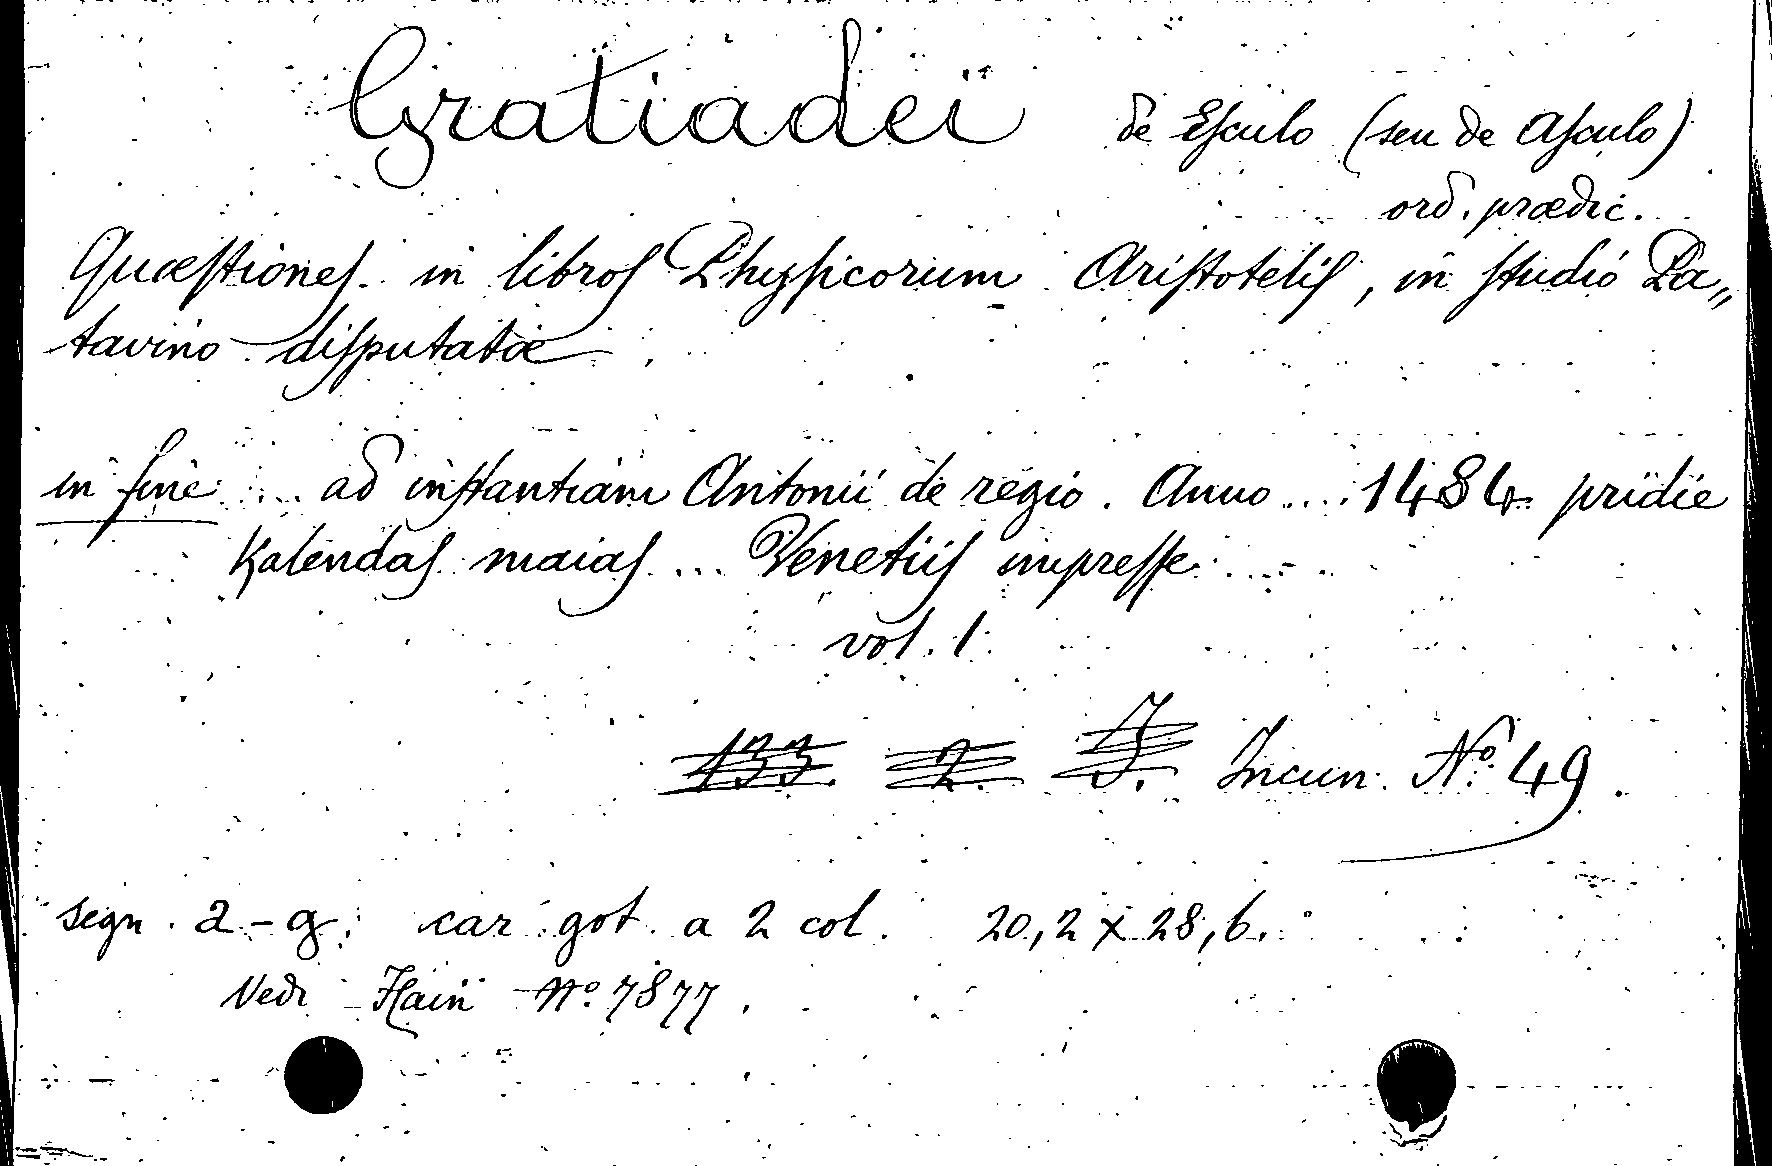 Gratiadei de Esculo (seu de Asculo)
ord. prædic.
Quæstiones in libros Physicorum Aristotelis, in studio Pa„
tavino disputatæ
in fine ... ad instantiam Antonii de regio. Anno .... 1484 pridie
Kalendas maias ... Venetiis impresse ....
vol. 1.
133. 2. J. Incun. Nº 49.
segn. a-g. car got. a 2 col. 20,2 x 28,6.
Vedi Hain Nº. 7877.